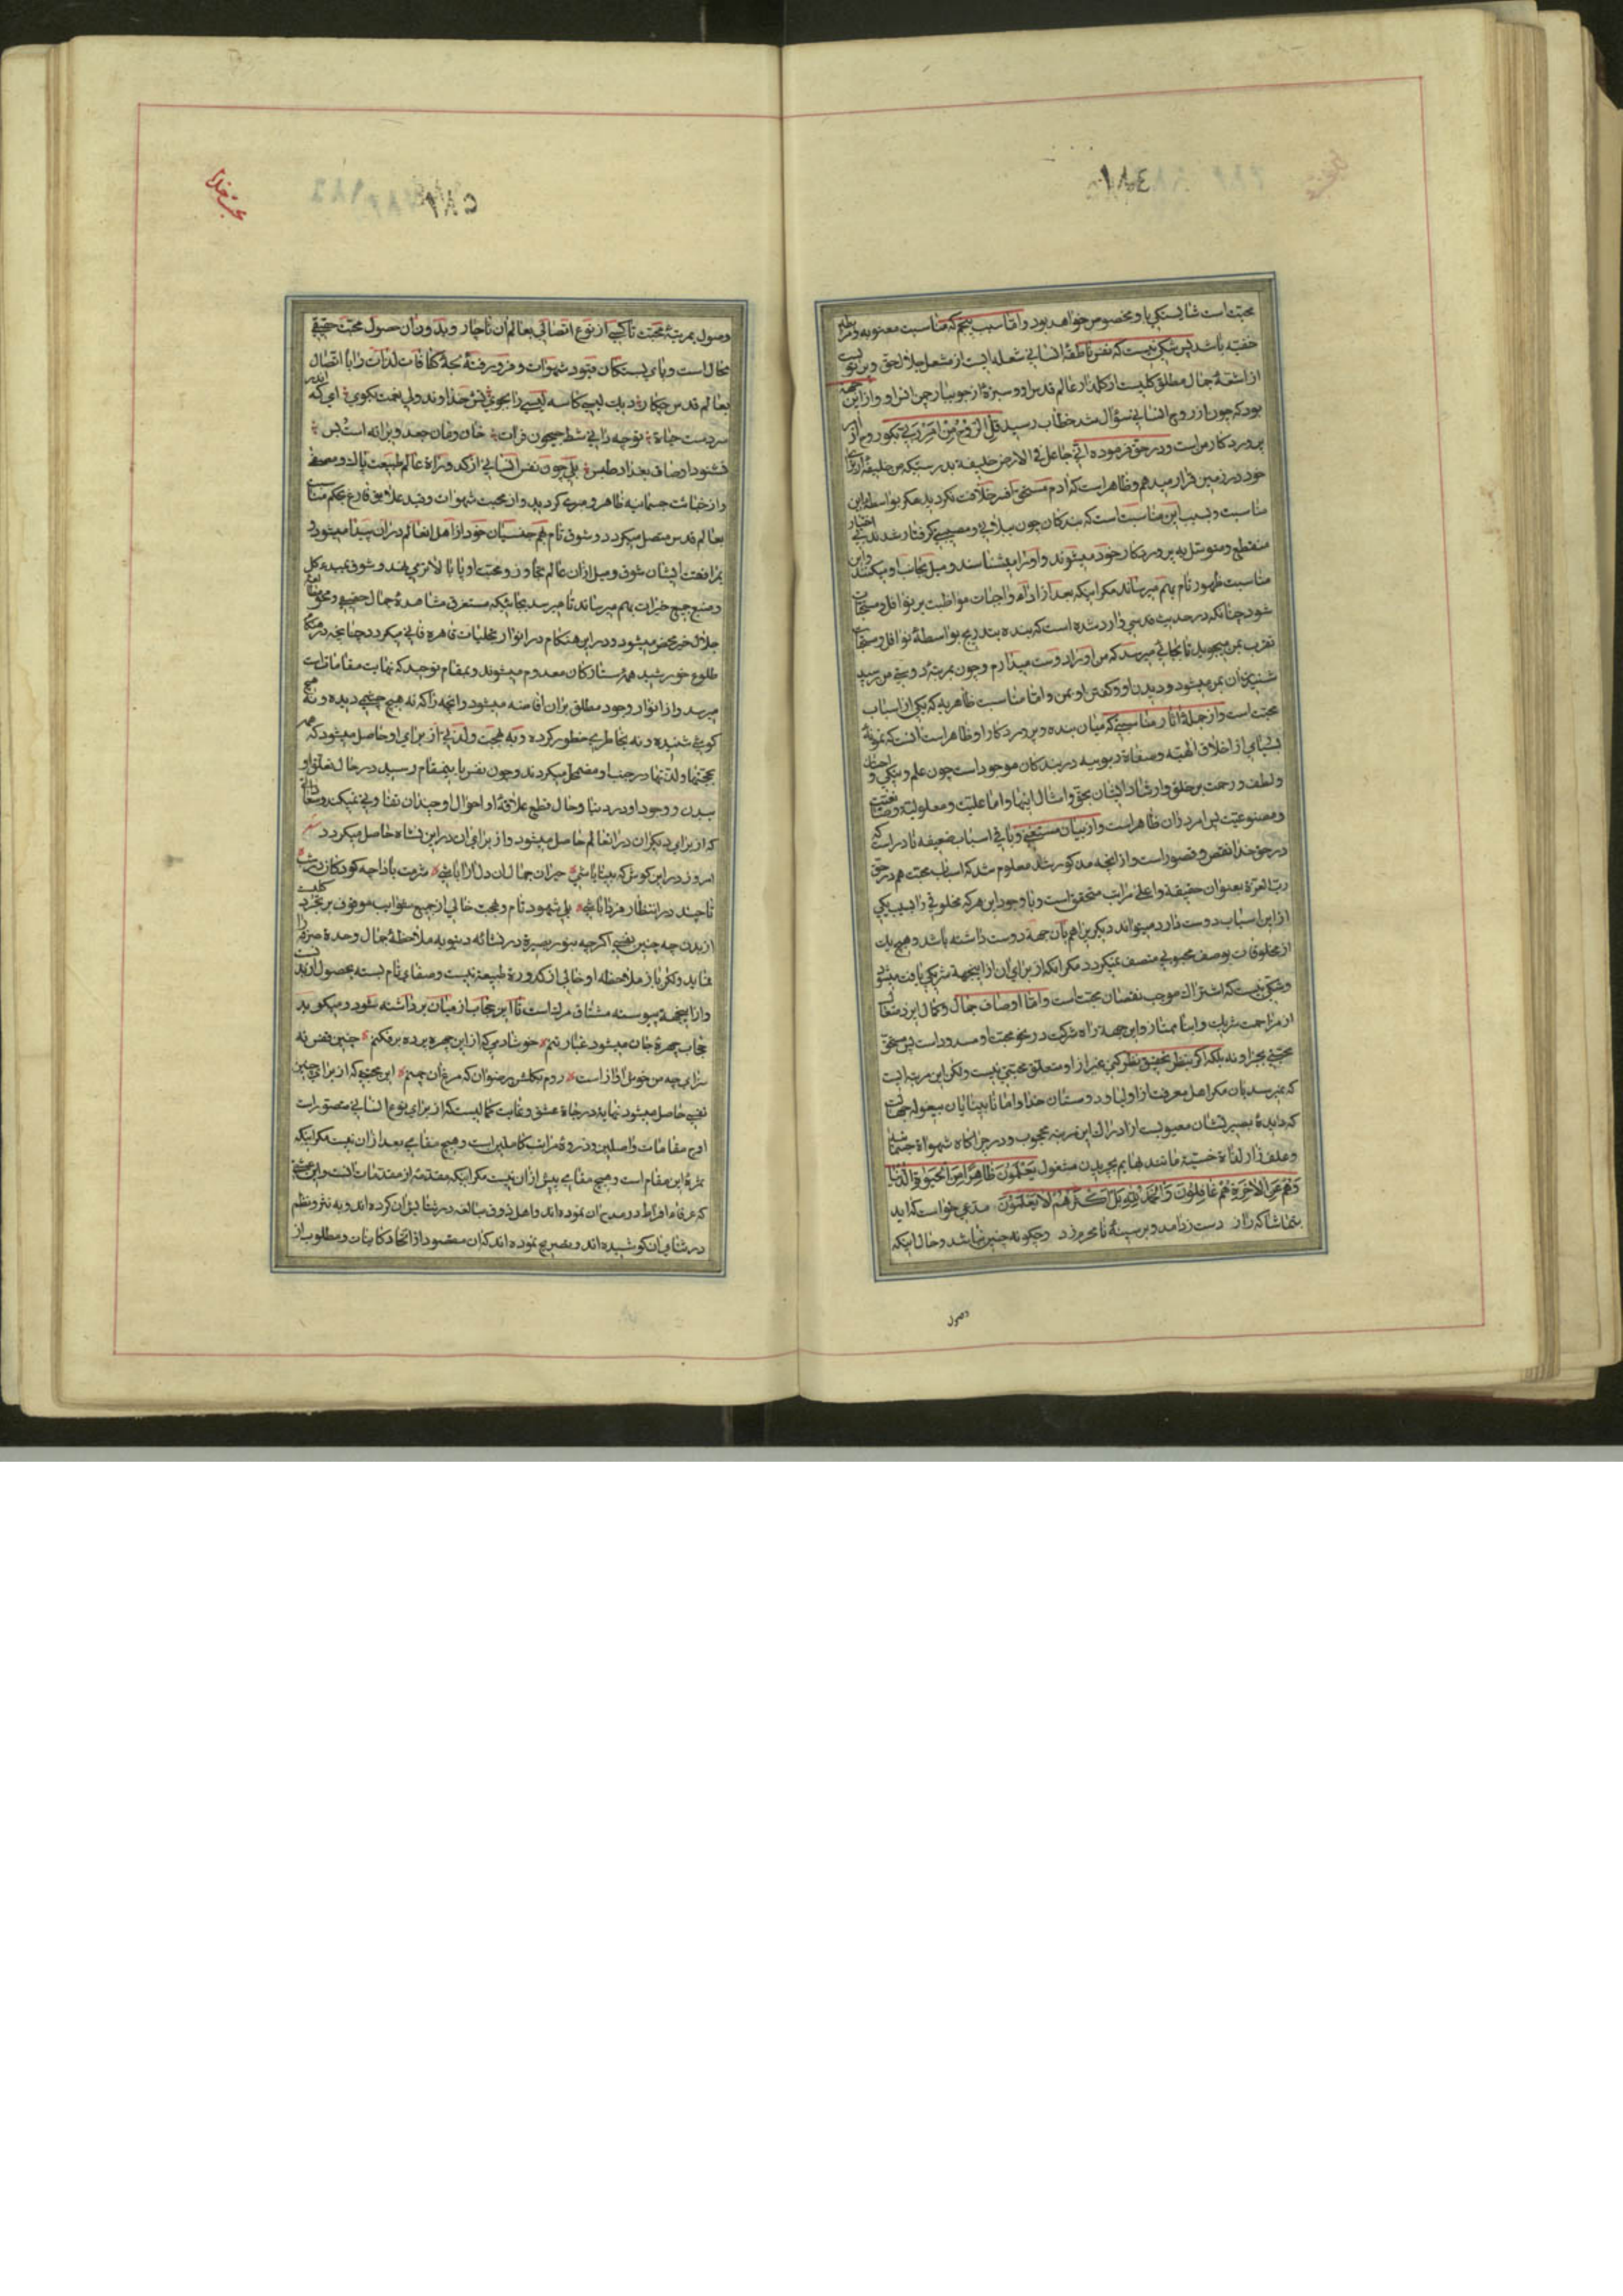 محبت خدا
۵۸۲
محبتست شایستگی باو مخصوص خواهد بود و اما سبب پنجم که مناسبت معنویه و رابطه
خفیه باشد پس شکی نیست که نفس ناطقهٔ انسانی شعله ایست از مشعل جلال حق و پرتویست
از اشعهٔ جمال مطلق گلیست از گلزار عالم قدس او و سبزهٔ از جویبار چمن انس او و از این جهه
بود که چون از روح انسانی سؤال شد خطاب رسید قل الروح من امر ربی بگو روح از امر
پروردگار من است و در حق او فرموده انی جاعل فی الارض خلیفة بدرستیکه من خلیفهٔ از برای
خود در زمین قرار میدهم و ظاهر است که آدم مستحق افسر خلافت نگردید مگر بواسطه این
مناسبت و بسبب این مناسبت است که بندگان چون ببلائی و مصیبتی گرفتار شدند بی اختیار
منقطع و متوسل به پروردگار خود میشوند و او را میشناسند و میل بجانب او میکنند و این
مناسبت ظهور تام بهم نمیرساند مگر اینکه بعد از اداء واجبات مواظبت بر نوافل و مستحبات
شود چنانکه در حدیث قدسی وارد شده است که بنده بتدریج بواسطهٔ نوافل و مستحبات
تقرب بمن میجوید تا بجائی میرسد که من او را دوست میدارم و چون بمرتبهٔ دوستی من رسید
شنیدن آن بمن میشود و دیدن او و گفتن او بمن و اما مناسبت ظاهریه که یکی از اسباب
محبت است و از جملهٔ آثار مناسبتی که میان بنده و پروردگار او ظاهر است آنست که نمونهٔ
بسیاری از اخلاق الهیه و صفاة ربوبیه در بندگان موجود است چون علم و نیکی و احسان
و لطف و رحمت بر خلق و ارشاد ایشان بحق و امثال اینها و اما علیت و معلولیت و صانعیت
و مصنوعیت پس امر در آن ظاهر است و از بیان مستغنی و باقی اسباب ضعیفه نادر است که
در حق خدا نقص و قصور است و از آنچه مذکور شد معلوم شد که اسباب محبت همه در حق
رب العزة بعنوان حقیقة و اعلی مراتب متحقق است و با وجود این هر که مخلوقی را بسبب یکی
از این اسباب دوست دارد میتواند دیگری را هم بآن جهة دوست داشته باشد و هیچ یک
از مخلوقات بوصف محبوبی متصف نمیگردد مگر آنکه از برای آن از اینجهة شریکی یافت میشود
و شکی نیست که اشتراک موجب نقصان محبت است و اما اوصاف جمال و کمال ایزد متعال
از مزاحمت شریک و انباز ممتاز و این جهة راه شرکت در محبت او مسدود است پس مستحق
محبتی بجز او نه بلکه اگر بنظر تحقیق نظر کنی غیر از او متعلق محبتی نیست ولکن این مرتبه ایست
که نمیرسد بآن مگر اهل معرفت از اولیا و دوستان خدا و اما نابینایان بیغوله جهالت
که دیدهٔ بصیرتشان معیوبست از ادراک این مرتبه محجوب و در چراگاه شهواة جسمانیه
و علف زار لذاة خسیسة مانند بهایم بچریدن مشغول یعلمون ظاهرا من الحیوة الدنیا
و هم عن الاخرة هم غافلون و الحمد لله بل اکثرهم لا یعلمون مدعی خواست که آید
بتماشاگه راز دست رد آمد و بر سینهٔ نامحرم زد و چگونه چنین نباشد و حال اینکه
وصول
وصول بمرتبهٔ محبت تا کسی از نوع اتصالی بعالم آن ناچار و بدون آن حصول محبت حقیقی
محال است و پای بستگان قیود شهوات و فرو رفتهٔ لجهٔ کثافات لذات را با اتصال
بعالم قدس چکار دیک لیسی کاسه لیسی را بجوی کش خداوند ولی نعمت بگوی ای که اندر
سردست جاة توچه دانی شط جیحون فرات خان و مان جغد ویرانه است بس
نشنود اوصاف بغداد طبس بلی چون نفس انسانی از کدورات عالم طبیعت پاک و مصفی
و از خبائث جسمانیه طاهر و مبری گردید و از محبت شهوات و قید علایق فارغ بحکم مناسبت
بعالم قدس متصل میگردد و شوق تام بهم جنسیان خود از اهل انعالم در آن پیدا میشود و
بمرافقت ایشان شوق و میل از آن عالم تجاوز و محبت او پا بالاتر می نهد و شوق بمبدء کل
و منبع جمیع خیرات بهم میرساند تا میرسد بجائیکه مستغرق مشاهدهٔ جمال حقیقی و محو لمعات
جلال خیر محض میشود و در این هنگام در انوار تجلیات قاهره فانی میگردد چنانچه در هنگام
طلوع خورشید همهٔ ستارگان معدوم میشوند و بمقام توحید که نهایت مقامات است
میرسد و از انوار وجود مطلق بر آن افاضه میشود و آنچه را که نه هیچ چشمی دیده و نه هیچ
گوشی شنیده و نه بخاطری خطور کرده و به بهجت و لذتی از برای او حاصل میشود که همه
بهجتها و لذتها در جنب او مضمحل میگردند و چون نفس باینمقام رسید در حال تعلق او
ببدن و وجود او در دنیا و حال قطع علاقهٔ او احوال او چندان تفاوتی نمیکند و سعادتی
که از برای دیگران در انعالم حاصل میشود و از برای آن در این نشاه حاصل میگردد شعر
امروز در این کوش که بینا باشی حیران جمال آن دل آرا باشی شرمت بادا چه کودکان در شب عید
تا چند در انتظار فردا باشی بلی شهود تام و بهجت خالی از جمیع شوایب موقوف بر تجرد کلیست
از بدن چه چنین نفسی اگر چه بنور بصیرة در نشائه دنیویه ملاحظهٔ جمال وحدة صرفه را
نماید ولکن باز ملاحظه او خالی از کدورة طبیعة نیست و صفای تام بسته بحصول تجرد است
و از اینجهة پیوسته مشتاق مرگ است تا این حجاب از میان برداشته شود و میگوید
حجاب چهرهٔ جان میشود غبار تنم خوشا دمی که از این چهره پرده برفکنم چنین قفس نه
سزای چه من خوش آواز است روم بگلشن رضوان که مرغ آن چمنم این محبتی که از برای چنین
نفسی حاصل میشود نهایة درجاة عشق و غایت کمالیست که از برای نوع انسانی متصور است
اوج مقامات واصلین و ذروهٔ مراتب کاملین است و هیچ مقامی بعد از آن نیست مگر اینکه
ثمرهٔ این مقام است و هیچ مقامی پیش از آن نیست مگر اینکه مقدمهٔ از مقدمات آنست و این عشقی است
که عرفاء افراط در مدح آن نموده اند و اهل ذوق مبالغه در ثنایش آن کرده اند و به نثر و نظم
در ثنای آن کوشیده اند و تصریح نموده اند که آن مقصود از ایجاد کاینات و مطلوب از